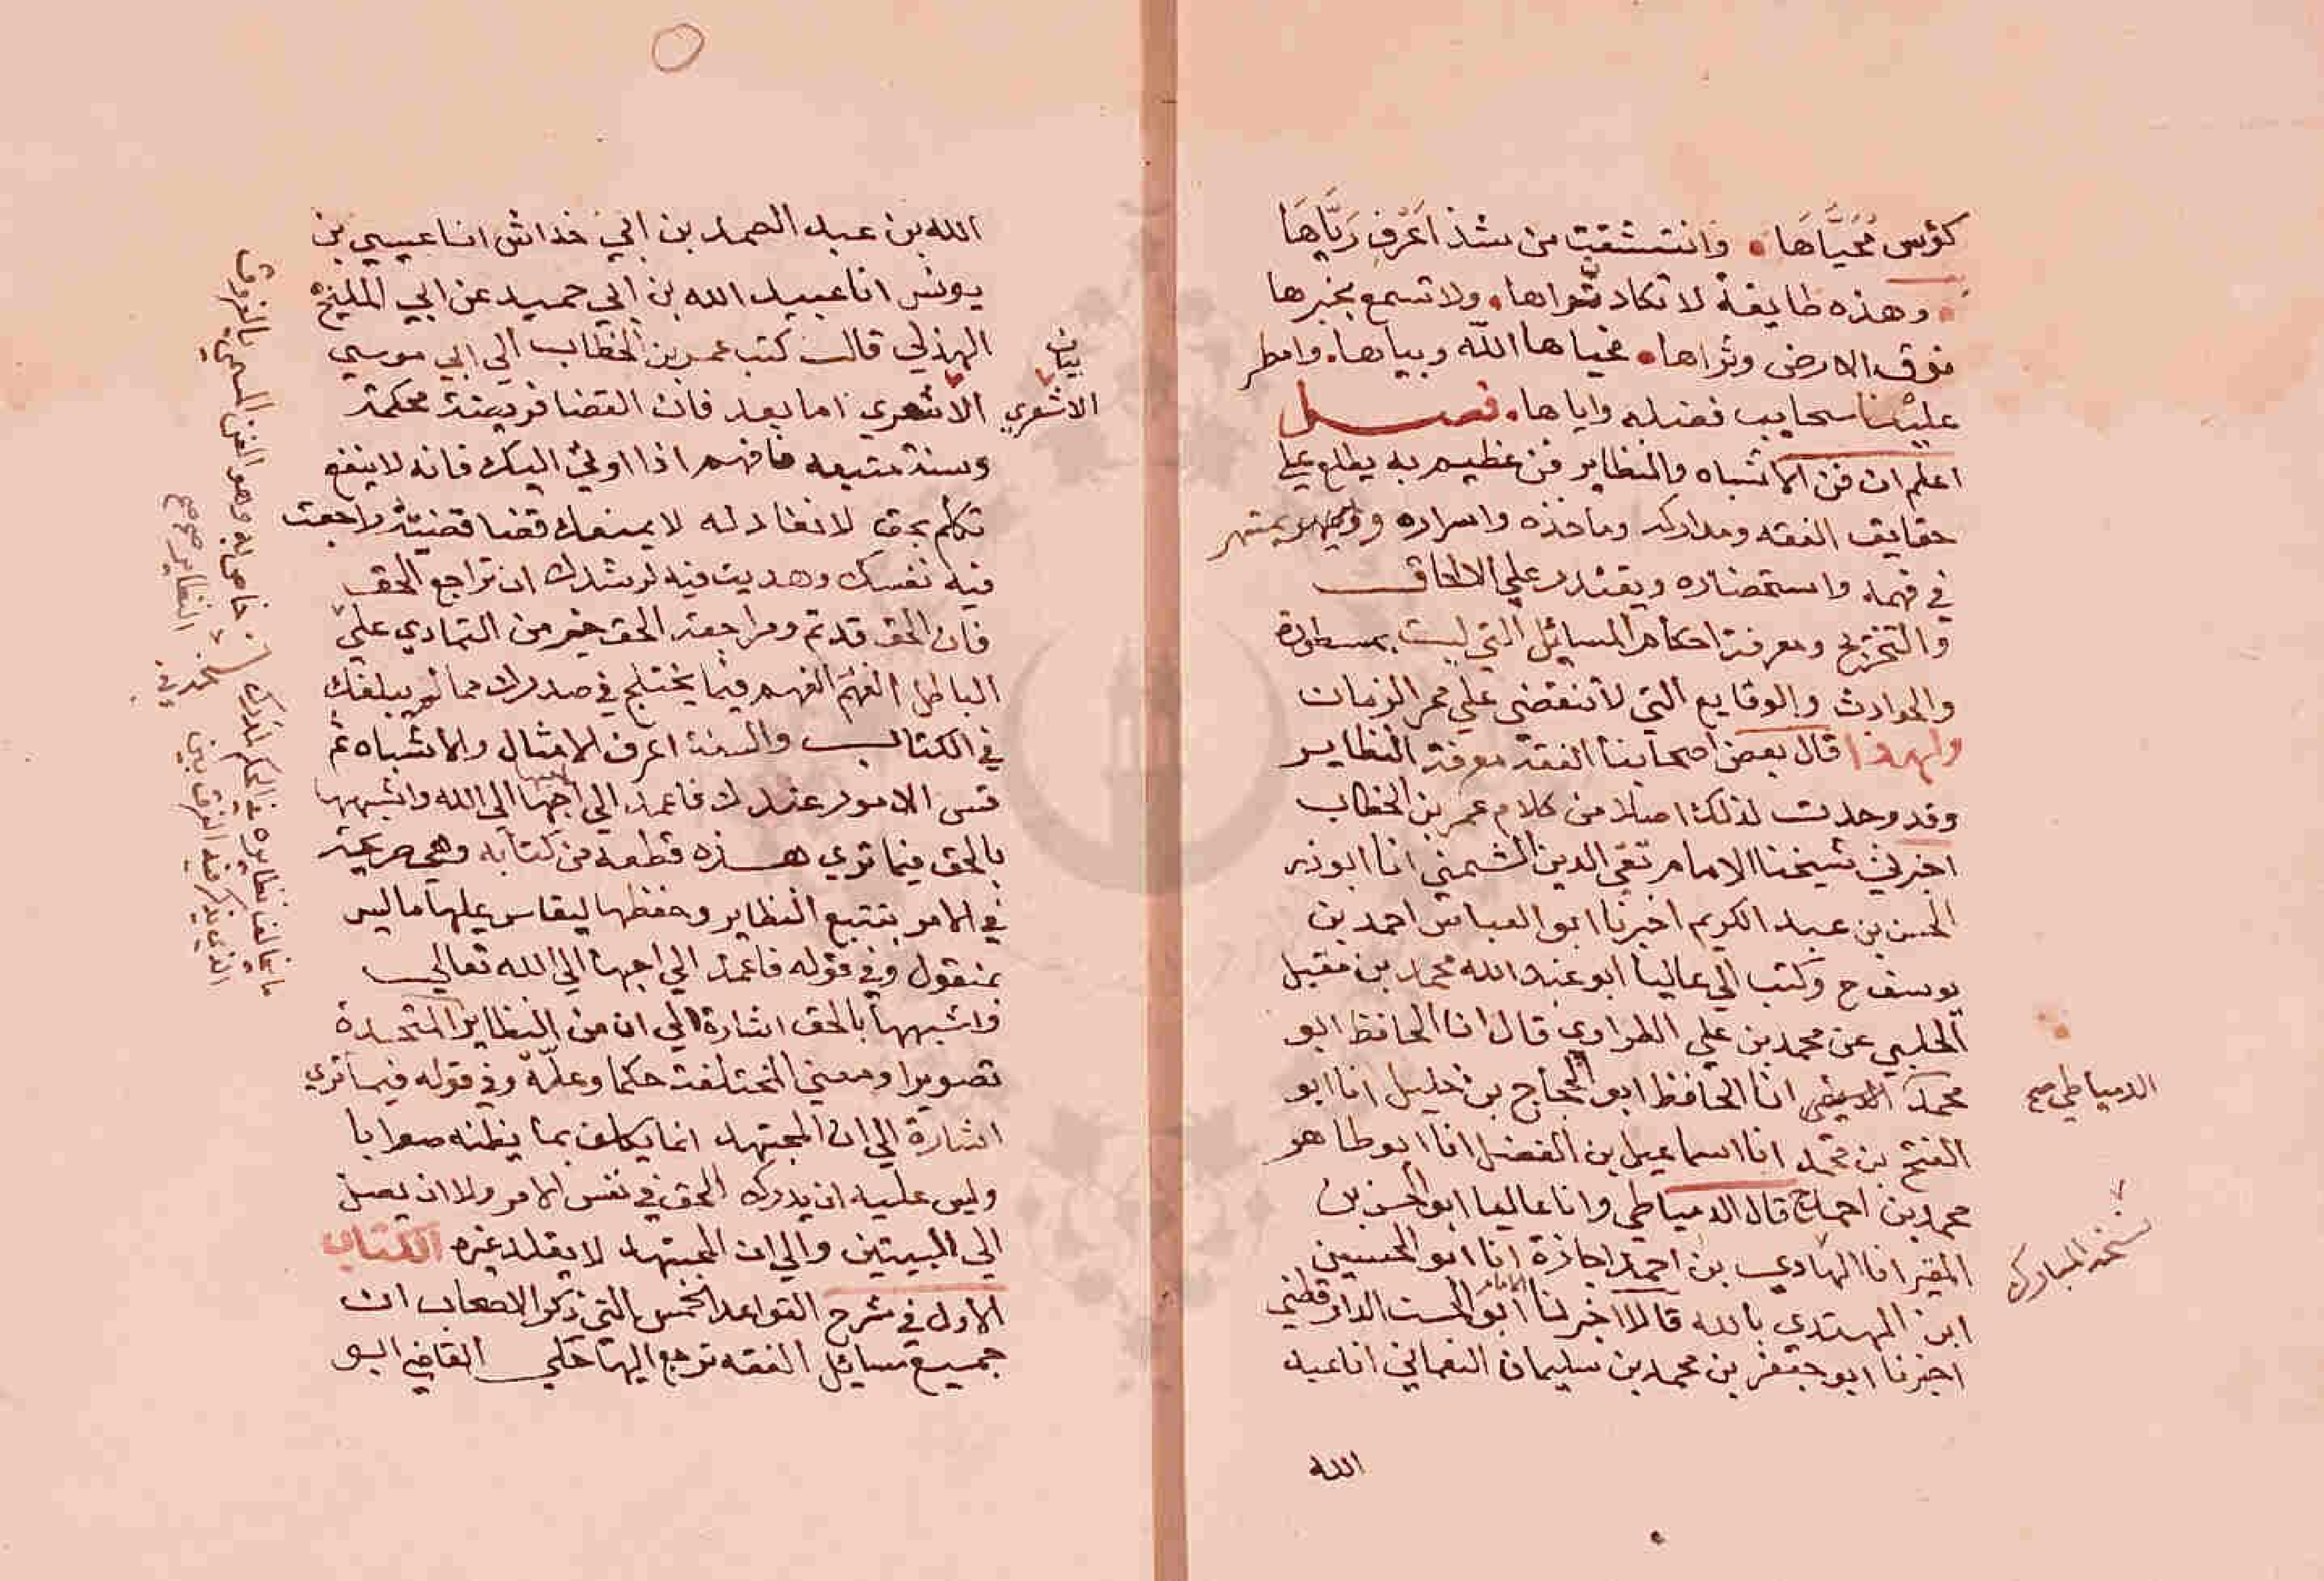 كؤس مُحَيَّاهَا • وانتشقت من شذا عَرْفِ رَيَّاهَا
• وهذه طايفة لا تكاد تراها • ولا تسمع بخبرها
فوق الارض وثراها • فحياها الله وبياها • وامطر
علينا سحايب فضله واياها • فصل
اعلم ان فن الاشباه والنظاير فن عظيم به يطلع على
حقايق الفقه ومداركه وماخذه واسراره ويتمهر
في فهمه واستحضاره ويقتدر علي الالحاق
والتخريج ومعرفة احكام المسائل التي ليست بمسطورة
والحوادث والوقايع التي لا تنقضي علي ممر الزمان
ولهذا قال بعض اصحابنا الفقه معرفة النظاير
وقد وجدت لذلك اصلا من كلام عمر بن الخطاب
اخبرني شيخنا الامام تقي الدين الشمني انا ابو ذر
الحسن بن عبد الكريم اخبرنا ابو العباس احمد بن
يوسف ح وكتب الي عاليا ابو عبد الله محمد بن مقبل
الحلبي عن محمد بن علي الحراوي قال انا الحافظ ابو
محمد انا الحافظ ابو الحجاج بن خليل انا ابو
الدمياطي صح
الفتح بن محمد انا اسماعيل بن الفضل انا ابو طاهر
محمد بن احمد ح قال الدمياطي وانا عاليا ابو الحسن بن
المقير انا المبارك بن احمد اجازة انا ابو الحسين
نسخة المبارك
ابن المهتدي بالله قالا اخبرنا الامام ابو الحسن الدارقطني
اخبرنا ابو جعفر بن محمد بن سليمان النعماني انا عبد
الله
الله بن عبد الصمد بن ابي خداش انا عيسي بن
يونس انا عبيد الله بن ابي حميد عن ابي المليح
الهذلي قال كتب عمر بن الخطاب الي ابي موسي
بيان
الاشعري
الاشعري اما بعد فان القضا فريضة محكمة
وسنة متبعه فافهم اذا ادلي اليك فانه لا ينفع
تكلم بحق لا نفاذ له لا يمنعك قضا قضيته راجعت
فيه نفسك وهديت فيه لرشدك ان تراجع الحق
فان الحق قديم ومراجعة الحق خير من التمادي علي
الباطل الفهم الفهم فيما يختلج في صدرك مما لم يبلغك
في الكتاب والسنة اعرف الامثال والاشباه ثم
قس الامور عندك فاعمد الي احبها الي الله واشبهها
بالحق فيما تري هذه قطعة من كتابه وهي صريحة
في الامر بتتبع النظاير وحفظها ليقاس عليها ما ليس
بمنقول وفي قوله فاعمد الي احبها الي الله تعالي
واشبهها بالحق اشارة الي ان من النظاير المتحدة
تصويرا ومعني المختلفة حكما وعلة وفي قوله فيما تري
اشارة الي ان المجتهد انما يكلف بما يظنه صوابا
وليس عليه ان يدرك الحق في نفس الامر ولا ان يصل
الي اليقين والي ان المجتهد لا يقلد غيره الكتاب
الاول في شرح القواعد الخمس التي ذكر الاصحاب ان
جميع مسائل الفقه ترجع اليها حكي القاضي ابو
ما يخالف نظايره في الحكم لمدرك خاص به وهو الفن المسمي بالفروق
الذي يذكر فيه الفرق بين النظاير صح